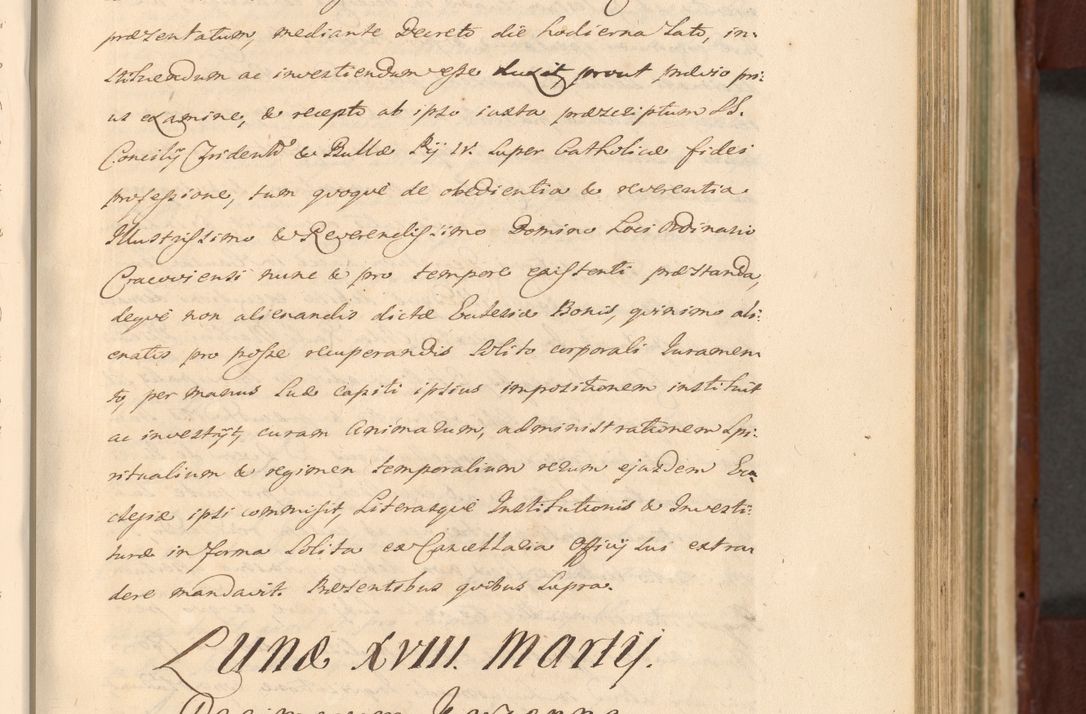 præzentatum, mediante Decreto die hodierna lato, in-
stituendum ac investiendum esse duxit, prout prævio pri-
us examine, & recepto ab ipso iuxta præscriptum SS.
Concilij Tridenti & Bullæ Pij IV. super Catholicæ fidei
professione, tum quoque de obedientia & reverentia
Illustrissimo & Reverendissimo Domino Loci Ordinario
Cracoviensi nunc & pro tempore existenti præstanda,
deque non alienandis dictæ Ecclesiæ Bonis, quinimo ali-
enatis pro posse recuperandis solito corporali Iuramen
to, per manus suæ capiti ipsius impositionem instituit
ac investijt, curam Animarum, administrationem Spi-
ritualium & regimen temporalium rerum ejusdem Ec-
clesiæ ipsi commisit, Literasque Institutionis & Investi-
turæ in forma solita ex Cancellaria Officij sui extra
dere mandavit. Præsentibus quibus supra.
Lunæ XVIII. Martij.